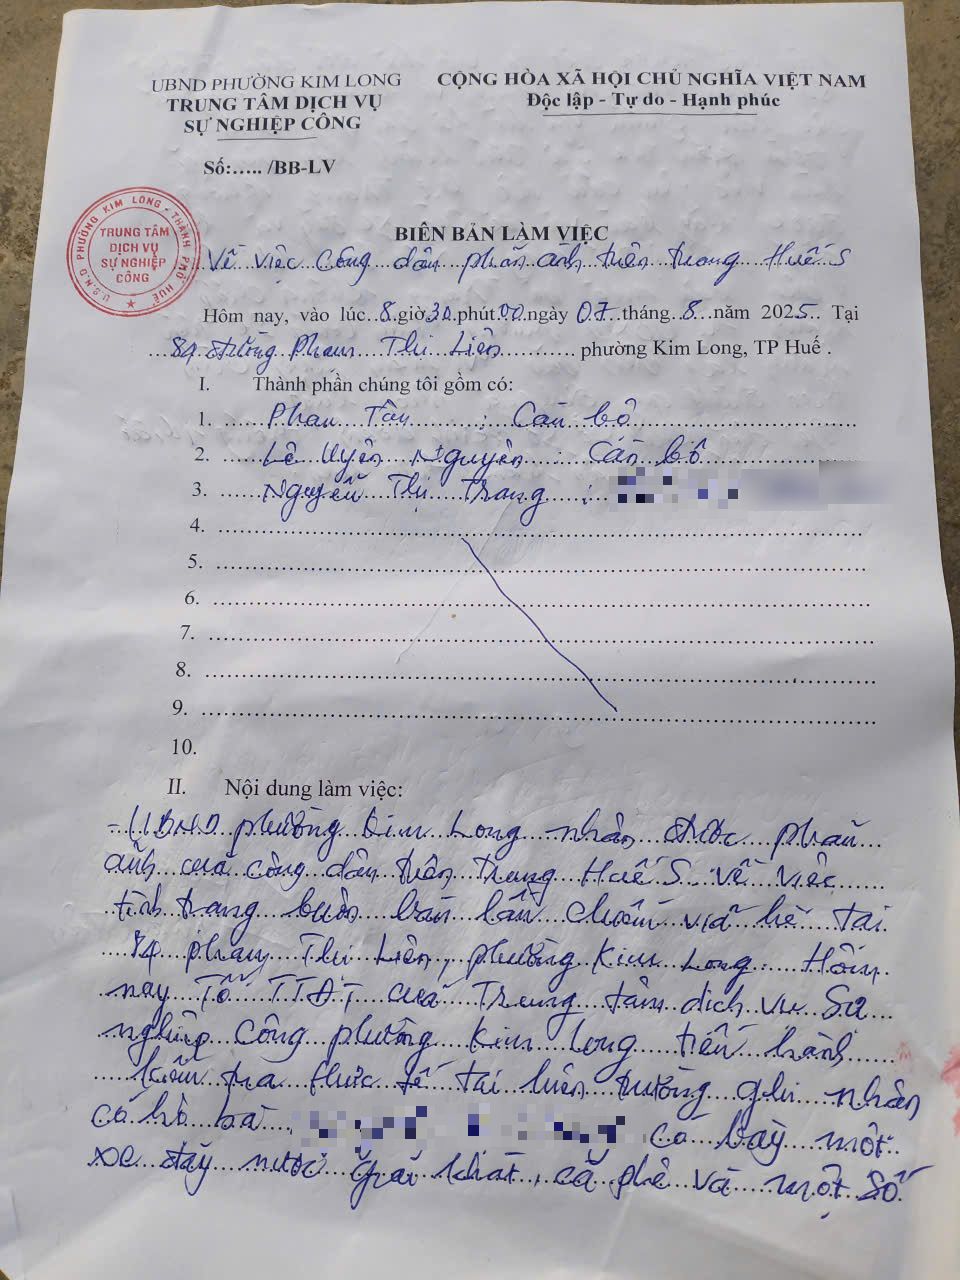 UBND PHƯỜNG KIM LONG
TRUNG TÂM DỊCH VỤ
SỰ NGHIỆP CÔNG
Số:..... /BB-LV
CỘNG HÒA XÃ HỘI CHỦ NGHĨA VIỆT NAM
Độc lập - Tự do - Hạnh phúc
U.B.N.D PHƯỜNG KIM LONG - THÀNH PHỐ HUẾ
TRUNG TÂM
DỊCH VỤ
SỰ NGHIỆP
CÔNG
BIÊN BẢN LÀM VIỆC
Về việc công dân phản ánh trên trang Huế S
Hôm nay, vào lúc 8 giờ 30 phút 00 ngày 07 tháng 8 năm 2025. Tại
84 đường Phạm Thị Liên phường Kim Long, TP Huế .
I. Thành phần chúng tôi gồm có:
1. Phan Tân : Cán bộ
2. Lê Uyên Nguyên : Cán bộ
3. Nguyễn Thị Trang :
4.
5.
6.
7.
8.
9.
10.
II. Nội dung làm việc:
- UBND phường Kim Long nhận được phản
ánh của công dân trên Trang Huế S về việc
tình trạng buôn bán lấn chiếm vỉa hè tại
84 Phạm Thị Liên, phường Kim Long. Hôm
nay Tổ TTĐT của Trung tâm dịch vụ Sự
nghiệp công phường Kim Long tiến hành
kiểm tra thực tế tại hiện trường ghi nhận
có hộ bà có bày một
xe đẩy nước giải khát, cà phê và một số